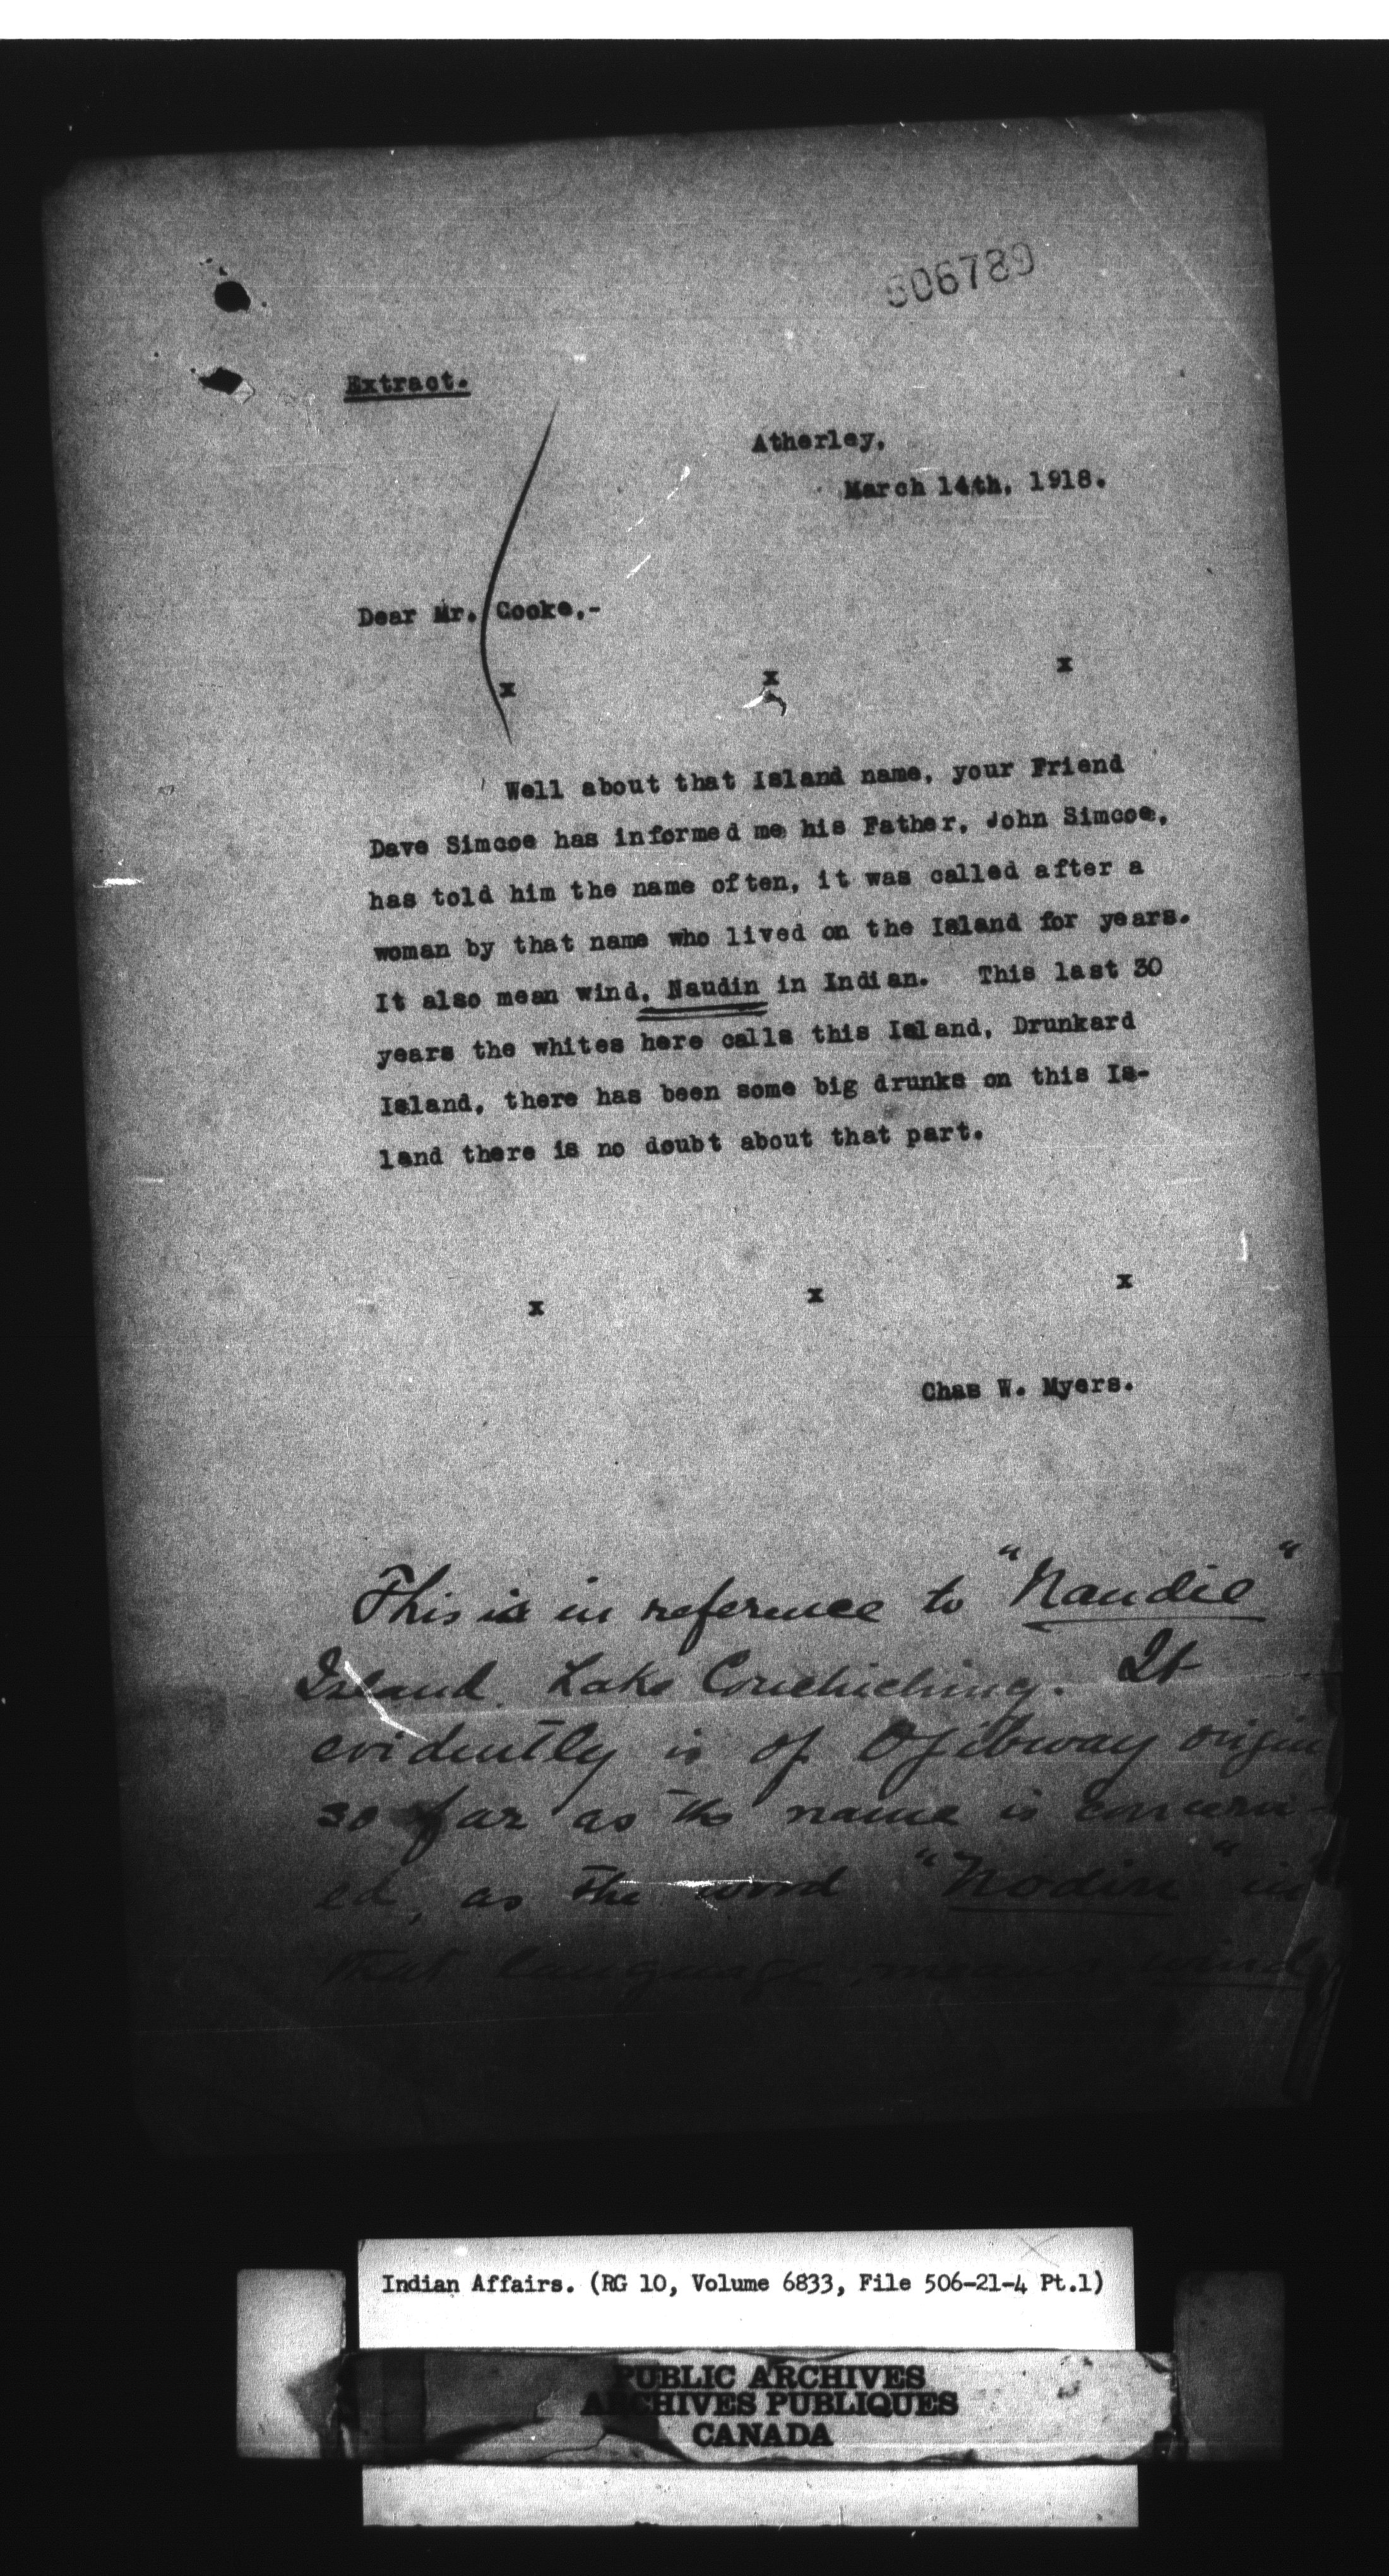 506789
Extract.
Atherley,
March 14th, 1918.
Dear Mr. Cooke,-
x x x
Well about that Island name, your Friend
Dave Simcoe has informed me his Father, John Simcoe,
has told him the name often, it was called after a
woman by that name who lived on the Island for years.
It also mean wind, Naudin in Indian. This last 30
years the whites here calls this Island, Drunkard
Island, there has been some big drunks on this Is-
land there is no doubt about that part.
x x x
Chas W. Myers.
This is in reference to "Naudie"
Island. Lake Couchiching. It
evidently is of Ojibway origin
so far as the name is concern-
ed, as the word "Nodin" in
that language, means wind
Indian Affairs. (RG 10, Volume 6833, File 506-21-4 Pt.1)
PUBLIC ARCHIVES
ARCHIVES PUBLIQUES
CANADA